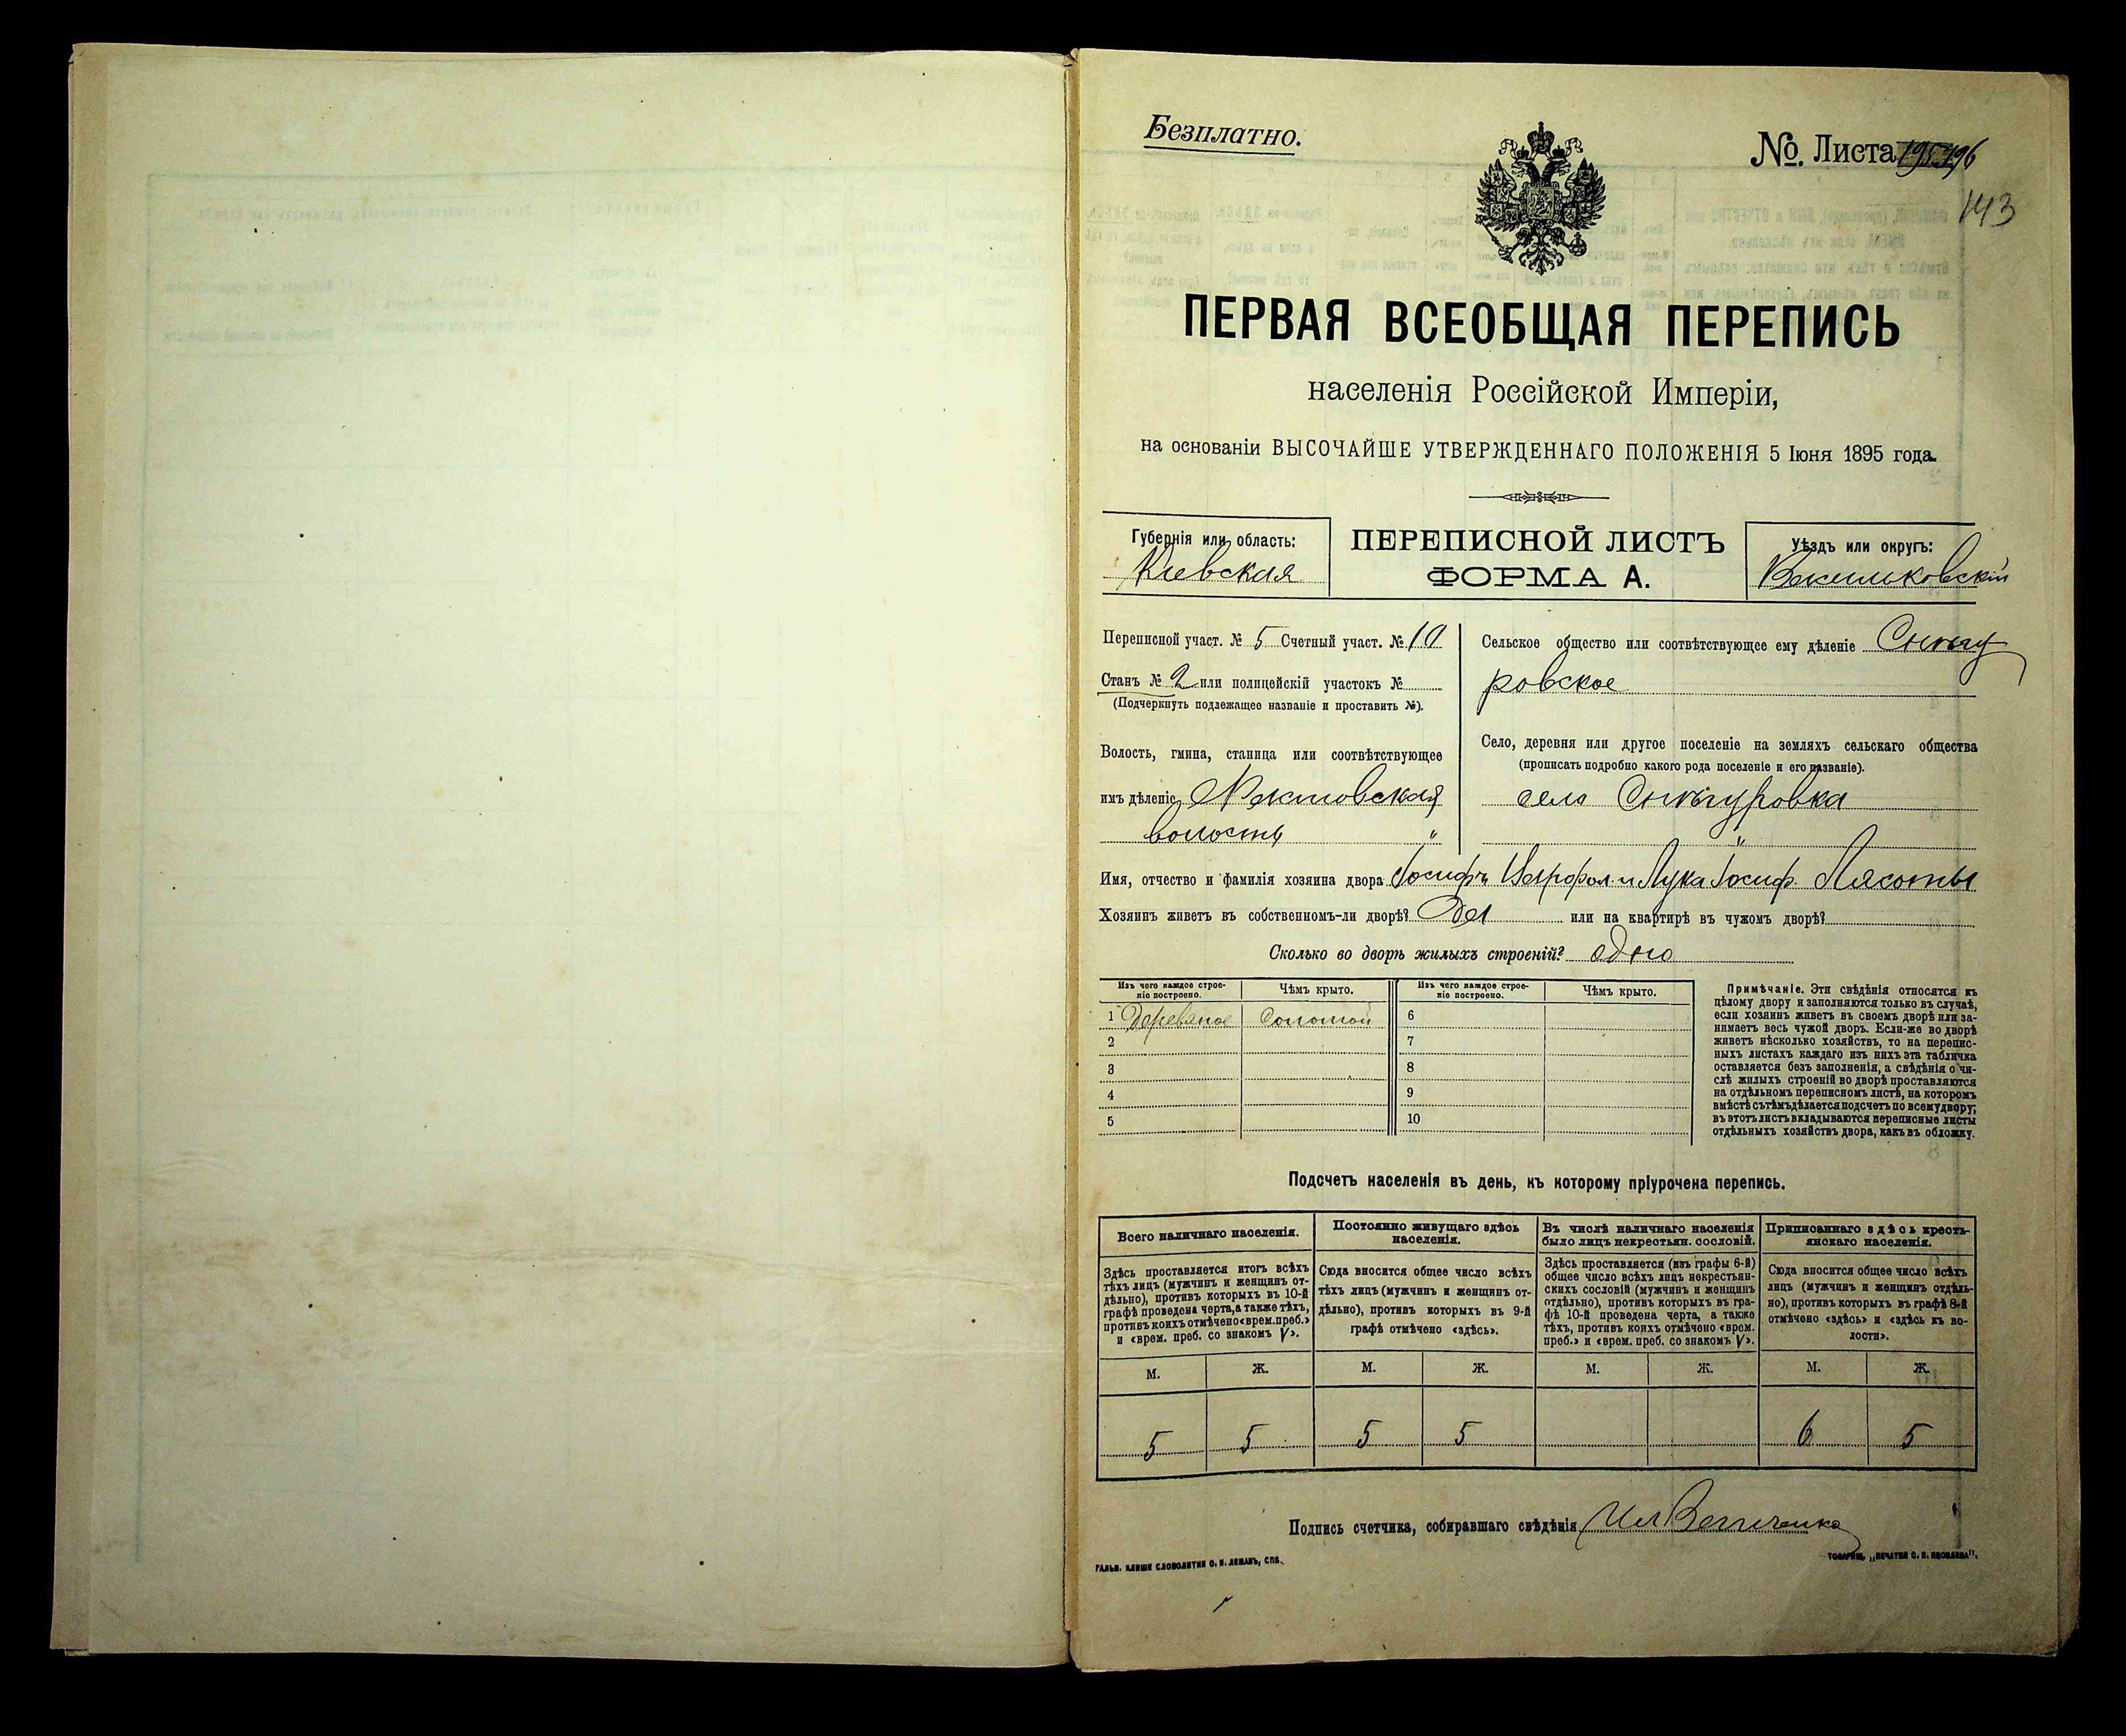 Безплатно.
№. Листа 196
143
ПЕРВАЯ ВСЕОБЩАЯ ПЕРЕПИСЬ
населенія Россійской Имперіи,
на основаніи ВЫСОЧАЙШЕ УТВЕРЖДЕННАГО ПОЛОЖЕНІЯ 5 Іюня 1895 года.
Губернія или область:
Кіевская
ПЕРЕПИСНОЙ ЛИСТЪ
ФОРМА А.
Уѣздъ или округъ:
Васильковскій
Переписной участ. № 5 Счетный участ. № 10
Станъ № 2 или полицейскій участокъ №
(Подчеркнуть подлежащее названіе и проставить №).
Волость, гмина, станица или соотвѣтствующее
имъ дѣленіе
волость "
Сельское общество или соотвѣтствующее ему дѣленіе Снѣгу
ровское
Село, деревня или другое поселеніе на земляхъ сельскаго общества
(прописать подробно какого рода поселеніе и его названіе).
село Снѣгуровка
"
Имя, отчество и фамилія хозяина двора Іосифъ и Лука Іосиф. Лясоты
Хозяинъ живетъ въ собственномъ-ли дворѣ? Да или на квартирѣ въ чужомъ дворѣ?
Сколько во дворѣ жилыхъ строеній? одно
Изъ чего каждое строе-
ніе построено.
Чѣмъ крыто.
Изъ чего каждое строе-
ніе построено.
Чѣмъ крыто.
1 Деревяное Соломой 6
2 7
3 8
4 9
5 10
Примѣчаніе. Эти свѣдѣнія относятся къ
цѣлому двору и заполняются только въ случаѣ,
если хозяинъ живетъ въ своемъ дворѣ или за-
нимаетъ весь чужой дворъ. Если-же во дворѣ
живетъ нѣсколько хозяйствъ, то на перепис-
ныхъ листахъ каждаго изъ нихъ эта табличка
оставляется безъ заполненія, а свѣдѣнія о чи-
слѣ жилыхъ строеній во дворѣ проставляются
на отдѣльномъ переписномъ листѣ, на которомъ
вмѣстѣ съ тѣмъ дѣлается подсчетъ по всему двору;
въ этотъ листъ вкладываются переписные листы
отдѣльныхъ хозяйствъ двора, какъ въ обложку.
Подсчетъ населенія въ день, къ которому пріурочена перепись.
Всего наличнаго населенія.
Здѣсь проставляется итогъ всѣхъ
тѣхъ лицъ (мужчинъ и женщинъ от-
дѣльно), противъ которыхъ въ 10-й
графѣ проведена черта, а также тѣхъ,
противъ коихъ отмѣчено «врем. преб.»
и «врем. преб. со знакомъ V».
Постоянно живущаго здѣсь
населенія.
Сюда вносится общее число всѣхъ
тѣхъ лицъ (мужчинъ и женщинъ от-
дѣльно), противъ которыхъ въ 9-й
графѣ отмѣчено «здѣсь».
Въ числѣ наличнаго населенія
было лицъ некрестьян. сословій.
Здѣсь проставляется (изъ графы 6-й)
общее число всѣхъ лицъ некрестьян-
скихъ сословій (мужчинъ и женщинъ
отдѣльно), противъ которыхъ въ гра-
фѣ 10-й проведена черта, а также
тѣхъ, противъ коихъ отмѣчено «врем.
преб.» и «врем. преб. со знакомъ V».
Приписаннаго здѣсь кресть-
янскаго населенія.
Сюда вносится общее число всѣхъ
лицъ (мужчинъ и женщинъ отдѣль-
но), противъ которыхъ въ графѣ 8-й
отмѣчено «здѣсь» и «здѣсь къ во-
лости».
М. Ж. М. Ж. М. Ж. М. Ж.
5 5 5 5 6 5
Подпись счетчика, собиравшаго свѣдѣнія Величенко
ГАЛЬВ. КЛИШЕ СЛОВОЛИТНИ О. И. ЛЕМАНЪ, СПБ.
ТОВАРИЩ. „ПЕЧАТНЯ С. П. ЯКОВЛЕВА“.